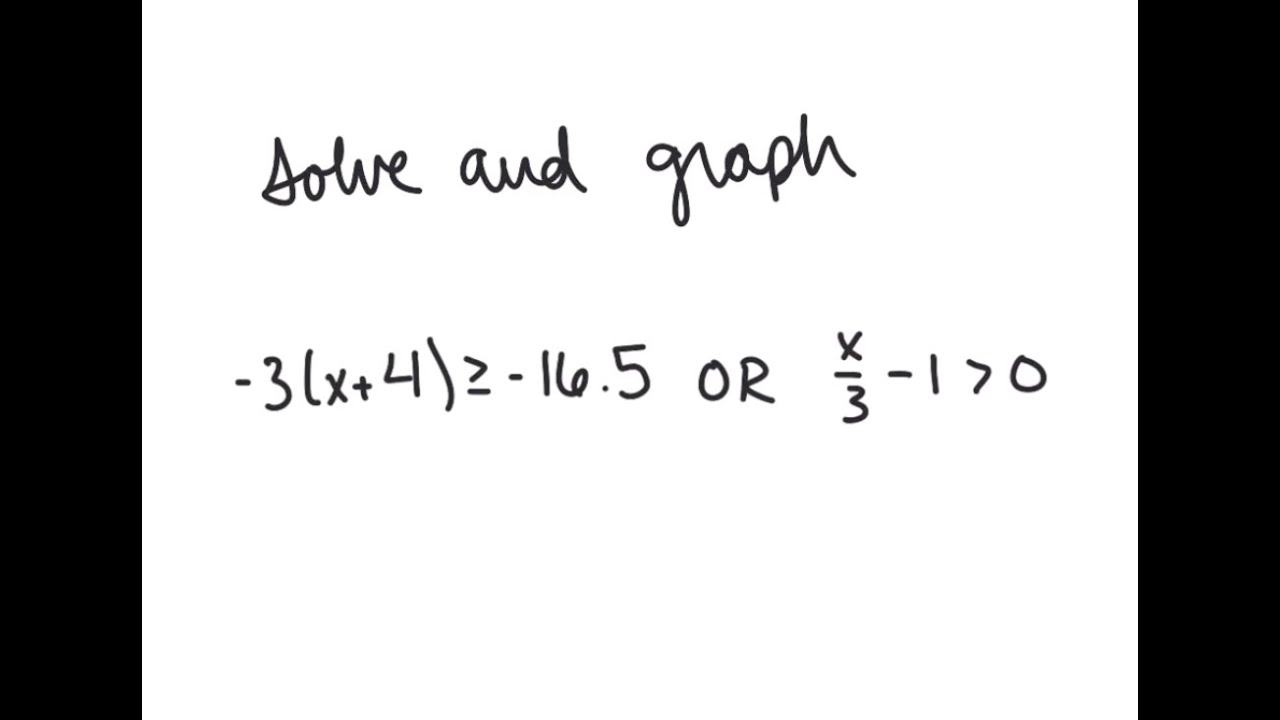 solve and graph
-3(x+4) ≥ -16.5 OR x/3 - 1 > 0